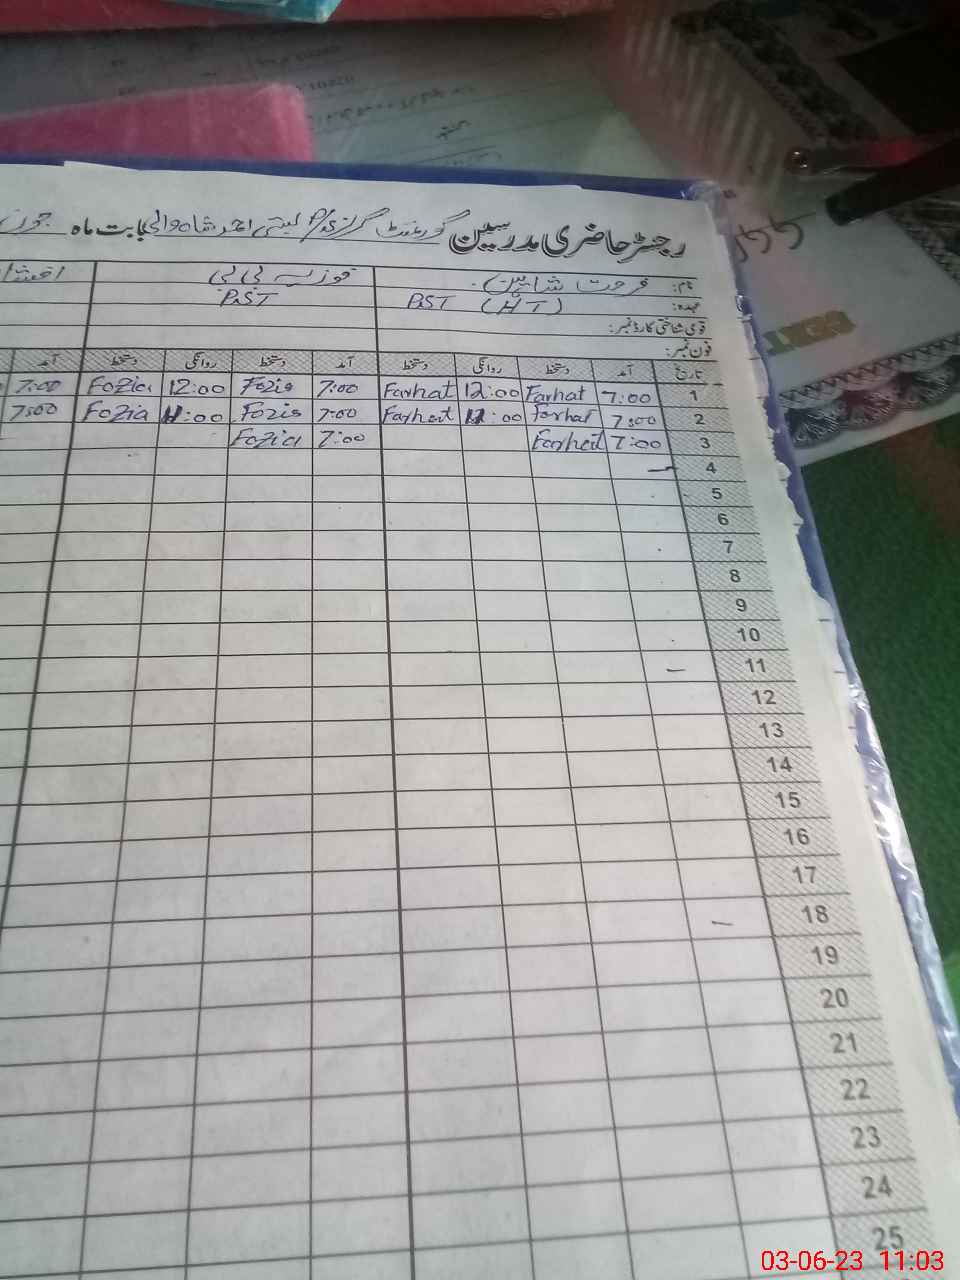 رجسٹر حاضری مدرسین گورنمنٹ گرلز P/S بستی احمد شاہ والی بابت ماہ جون
نام: فرحت شاہین فوزیہ بی بی
عہدہ: PST (HT) PST
قومی شناختی کارڈ نمبر:
فون نمبر:
تاریخ آمد دستخط روانگی دستخط آمد دستخط روانگی دستخط آمد
1 7:00 Farhat 12:00 Farhat 7:00 Fozia 12:00 Fozia 7:00
2 7:00 Farhat 11:00 Farhat 7:00 Fozia 11:00 Fozia 7:00
3 7:00 Farhat 7:00 Fozia
4
5
6
7
8
9
10
11
12
13
14
15
16
17
18
19
20
21
22
23
24
25
03-06-23 11:03